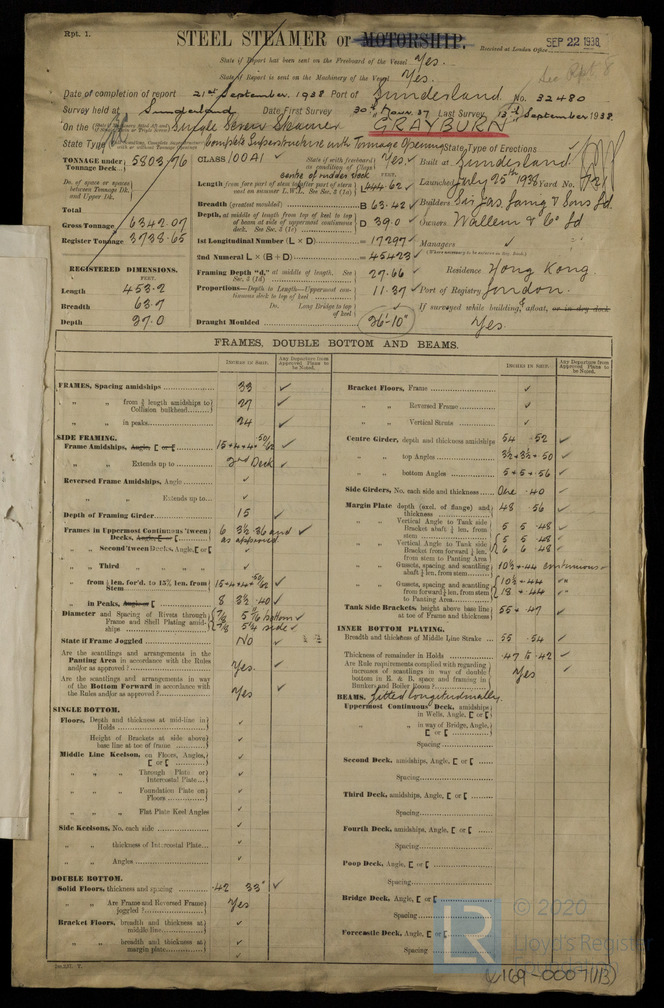 Rpt. 1.
STEEL STEAMER or MOTORSHIP.
Received at London Office SEP 22 1938
State if Report has been sent on the Freeboard of the Vessel Yes.
State if Report is sent on the Machinery of the Vessel Yes.
See Rpt 8
Date of completion of report 21st September. 1938 Port of Sunderland No. 32480
Survey held at Sunderland Date First Survey 30th Last Survey 13th September 1938
On the Single Screw Steamer GRAYBURN
State Type Complete Superstructure with Tonnage Opening State Type of Erections
TONNAGE under Tonnage Deck 5803.76
CLASS 100A1 State if with freeboard as condition of Class Yes
Built at Sunderland
Do. of space or spaces between Tonnage Dk. and Upper Dk.
centre of rudder stock
Length from fore part of stem to after part of stern post on summer L.W.L. See Sec. 3 (1a) L 444.62
Launched July 25th 1938 Yard No.
Total
Breadth (greatest moulded) B 63.42
Builders Sir Jas. Laing & Sons Ld
Gross Tonnage 6342.07
Depth, at middle of length from top of keel to top of beam at side of uppermost continuous deck. See Sec. 3 (1c) D 39.0
Owners Wallem & Co Ld
Register Tonnage 3738.65
1st Longitudinal Number (L × D) = 17297
Managers
2nd Numeral L × (B + D) = 45423
REGISTERED DIMENSIONS.
FEET.
Framing Depth "d," at middle of length. See Sec. 3 (1d) 27.66
Residence Hong Kong.
Length 453.2
Proportions—Depth to Length—Uppermost continuous deck to top of keel 11.37
Port of Registry London.
Breadth 63.7
Do. Long Bridge to top of keel
If surveyed while building, & afloat, or in dry dock
Depth 37.0
Draught Moulded 26'-10"
Yes.
FRAMES, DOUBLE BOTTOM AND BEAMS.
INCHES IN SHIP.
Any Departure from Approved Plans to be Noted.
INCHES IN SHIP.
Any Departure from Approved Plans to be Noted.
FRAMES, Spacing amidships 33
" " from 3/5 length amidships to Collision bulkhead 27
" " in peaks 24
SIDE FRAMING.
Frame Amidships, Angle, [ or [ 15 × 4 × 4 × .50/.62
" " Extends up to 2nd Deck
Reversed Frame Amidships, Angle
" " Extends up to
Depth of Framing Girder 15
Frames in Uppermost Continuous 'tween Decks, Angle, [ or [ 6 3½ .36 and as approved
" " Second 'tween Decks, Angle, [ or [
" " Third " "
" " from ¼ len. for'd. to 15% len. from Stem 15 × 4 × 4 × .50/.62
" " in Peaks, Angle or [ 8 3½ .40
Diameter and Spacing of Rivets through Frame and Shell Plating amidships 7/8 5 7/16 bottom
7/8 5¼ side
State if Frame Joggled NO
Are the scantlings and arrangements in the Panting Area in accordance with the Rules and/or as approved? Yes.
Are the scantlings and arrangements in way of the Bottom Forward in accordance with the Rules and/or as approved? Yes
SINGLE BOTTOM.
Floors, Depth and thickness at mid-line in Holds
Height of Brackets at side above base line at toe of frame
Middle Line Keelson, on Floors, Angles, [ or [
" " Through Plate or Intercostal Plate
" " Foundation Plate on Floors
" " Flat Plate Keel Angles
Side Keelsons, No. each side
" " thickness of Intercostal Plate
" " Angles
DOUBLE BOTTOM.
Solid Floors, thickness and spacing .42 33"
" " Are Frame and Reversed Frame joggled? Yes
Bracket Floors, breadth and thickness at middle line
" " breadth and thickness at margin plate
Bracket Floors, Frame
" " Reversed Frame
" " Vertical Struts
Centre Girder, depth and thickness amidships 54 .52
" " top Angles 3½ × 3½ × .50
" " bottom Angles 5 × 5 × .56
Side Girders, No. each side and thickness One .40
Margin Plate depth (excl. of flange) and thickness 48 .56
" " Vertical Angle to Tank side Bracket abaft ¼ len. from stem 5 5 .48
" " Vertical Angle to Tank side Bracket from forward ¼ len. from stem to Panting Area 5 5 .48
6 6 .48
" " Gussets, spacing and scantling abaft ¼ len. from stem 10½ .44 continuous
" " Gussets, spacing and scantling from forward ¼ len. from stem to Panting Area 10½ .44 "
18 × .44 "
Tank Side Brackets, height above base line at toe of Frame and thickness 55 × .47
INNER BOTTOM PLATING.
Breadth and thickness of Middle Line Strake 55 .54
Thickness of remainder in Holds .47 to .42
Are Rule requirements complied with regarding increases of scantlings in way of double bottom in E. & B. space and framing in Bunkers and Boiler Room? Yes
BEAMS. fitted longitudinally.
Uppermost Continuous Deck, amidships in Wells, Angle, [ or [
" " in way of Bridge, Angle, [ or [
Spacing
Second Deck, amidships, Angle, [ or [
Spacing
Third Deck, amidships, Angle, [ or [
Spacing
Fourth Deck, amidships, Angle, [ or [
Spacing
Poop Deck, Angle, [ or [
Spacing
Bridge Deck, Angle, [ or [
Spacing
Forecastle Deck, Angle, [ or [
Spacing
© 2020
Lloyd's Register
Foundation
W169-0007(1/3)